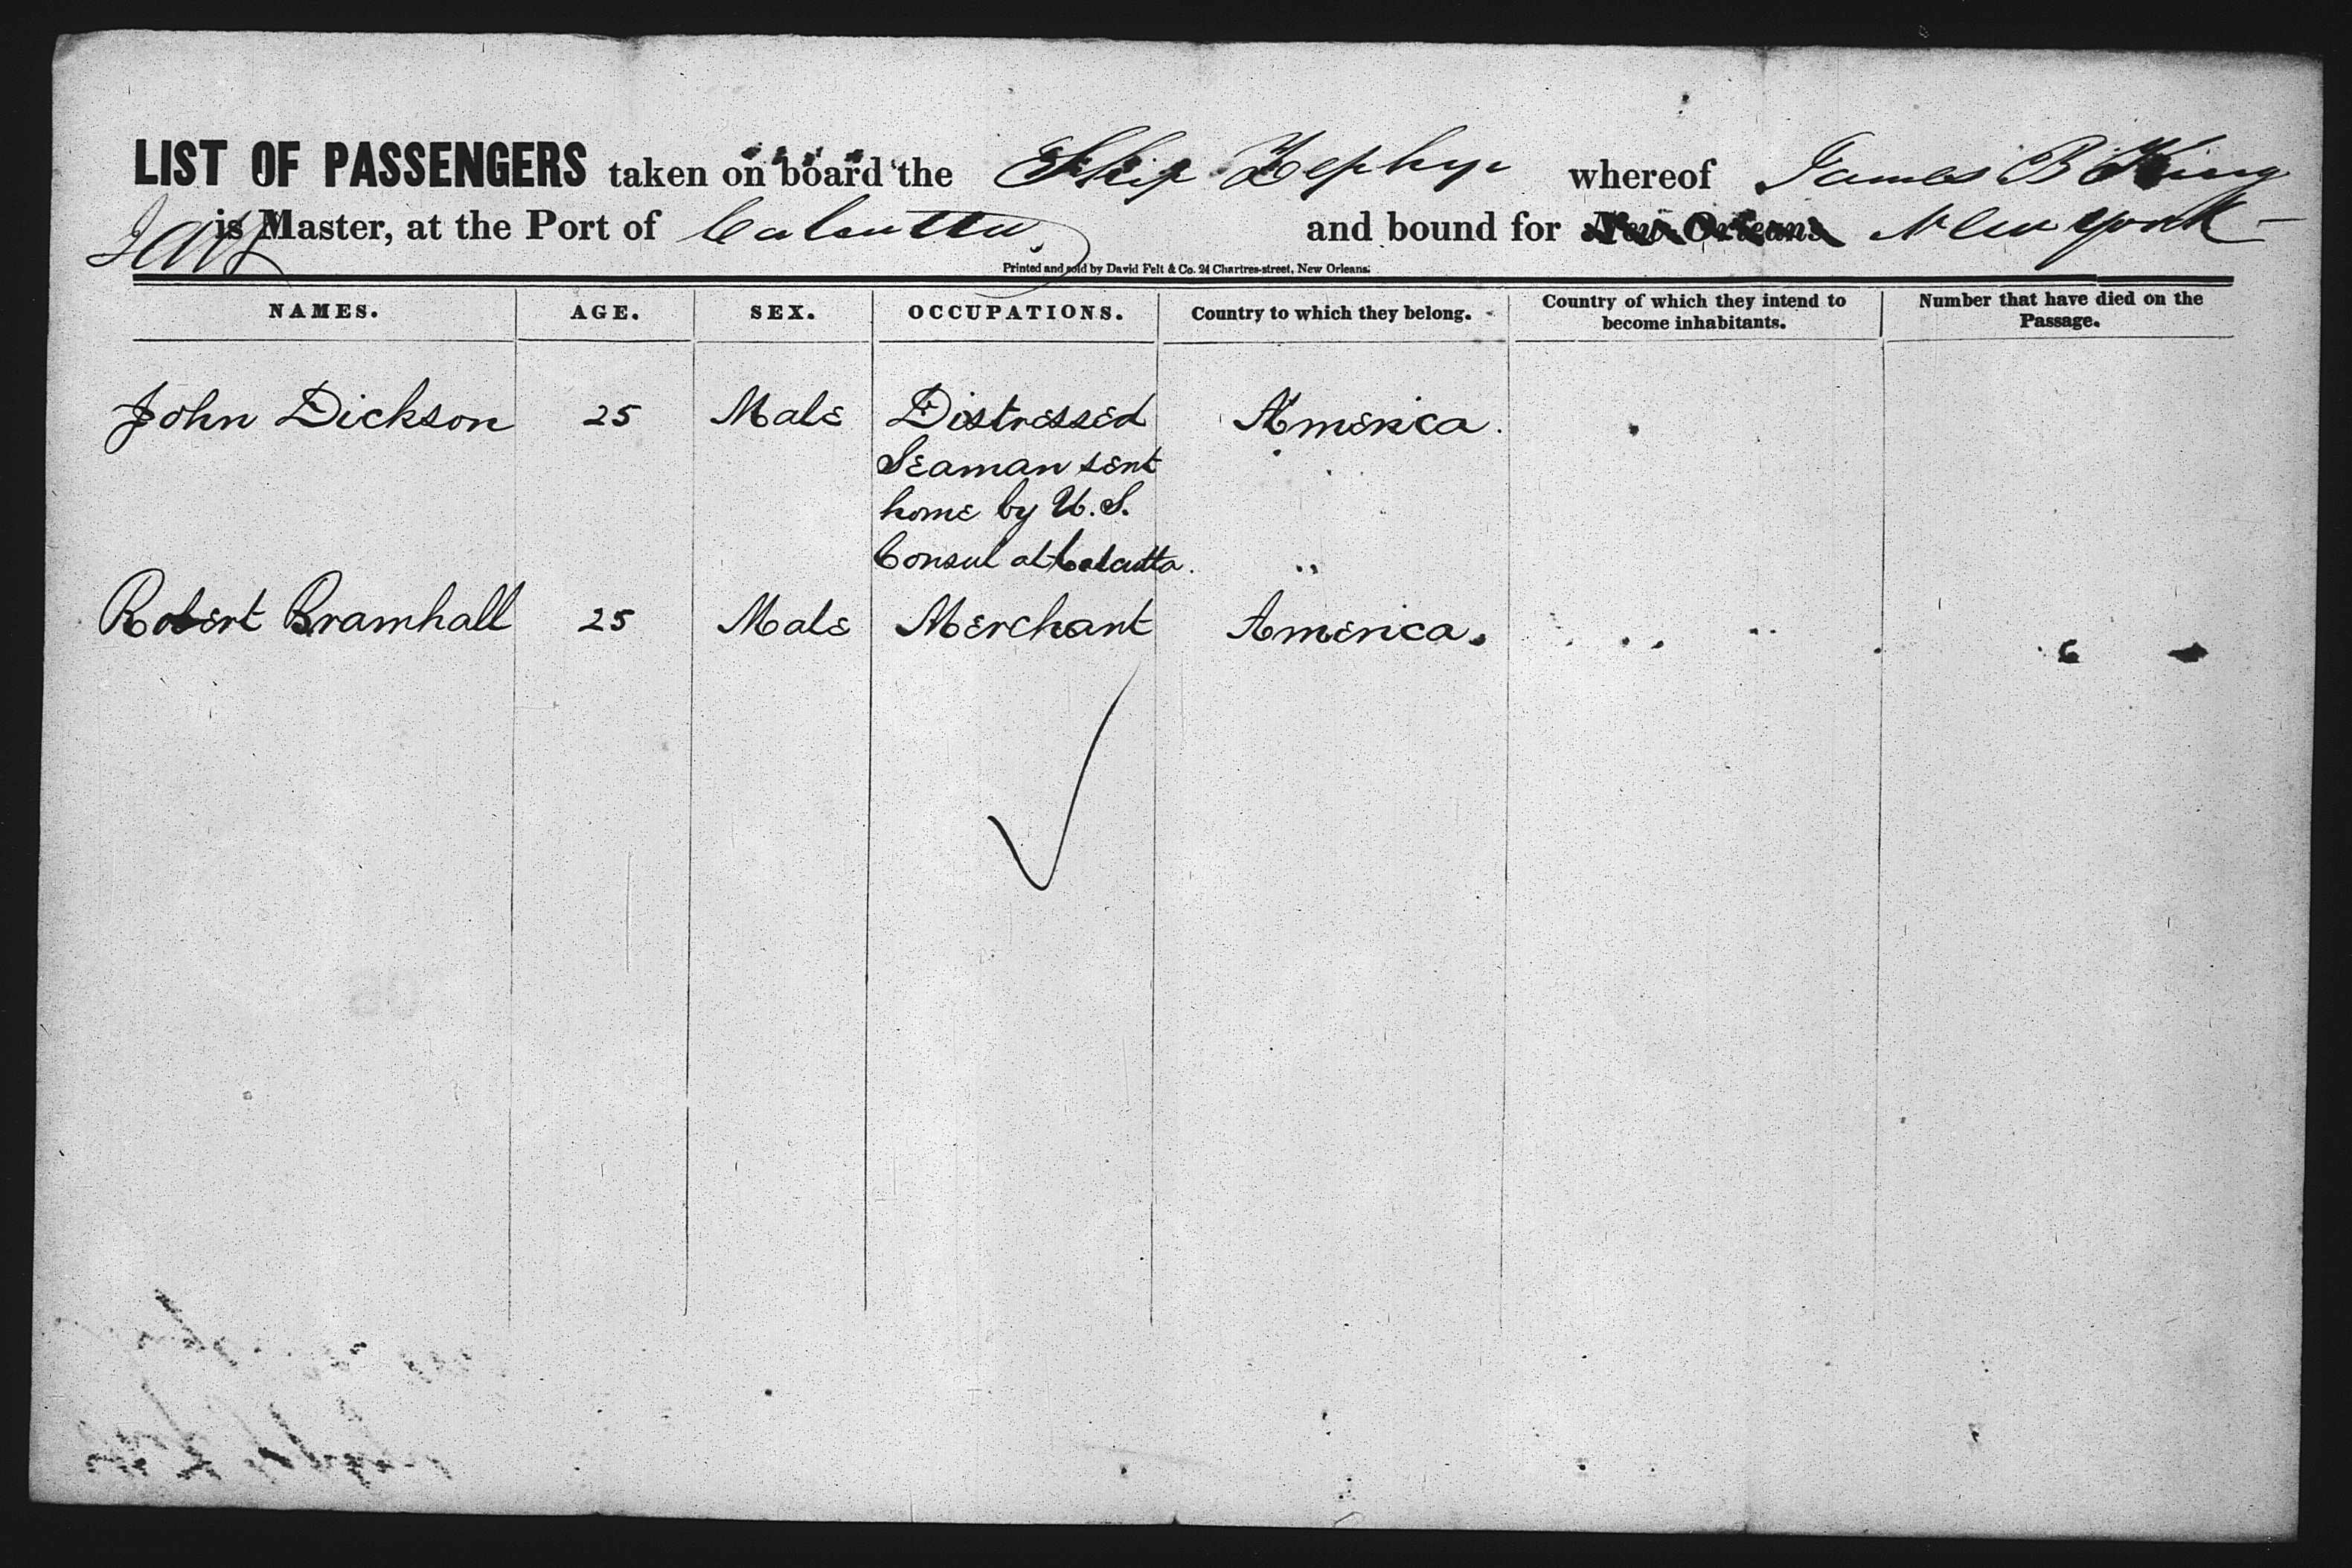 LIST OF PASSENGERS taken on board the Ship Zephyr whereof James B King
is Master, at the Port of Calcutta and bound for New Orleans New York
Printed and sold by David Felt & Co. 24 Chartres-street, New Orleans.
NAMES. AGE. SEX. OCCUPATIONS. Country to which they belong. Country of which they intend to Number that have died on the
become inhabitants. Passage.
John Dickson 25 Male Distressed America.
Seaman sent
home by U. S.
Consul at Calcutta.
Robert Bramhall 25 Male Merchant America.